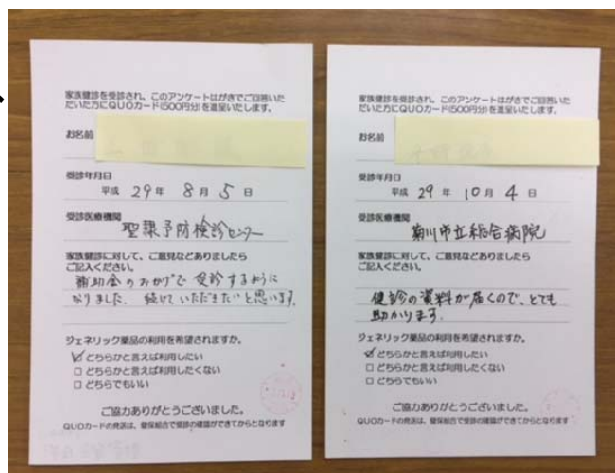 家族健診を受診され、このアンケートはがきでご回答いた
だいた方にQUOカード(500円分)を進呈いたします。
お名前
受診年月日
平成 29 年 8 月 5 日
受診医療機関
聖隷予防検診センター
家族健診に対して、ご意見などありましたら
ご記入ください。
補助金のおかげで受診するように
なりました。続けていただきたいと思います。
ジェネリック薬品の利用を希望されますか。
☑ どちらかと言えば利用したい
□ どちらかと言えば利用したくない
□ どちらでもいい
ご協力ありがとうございました。
QUOカードの発送は、健保組合で受診の確認ができてからとなります
家族健診を受診され、このアンケートはがきでご回答いた
だいた方にQUOカード(500円分)を進呈いたします。
お名前
受診年月日
平成 29 年 10 月 4 日
受診医療機関
菊川市立総合病院
家族健診に対して、ご意見などありましたら
ご記入ください。
健診の資料が届くので、とても
助かります。
ジェネリック薬品の利用を希望されますか。
☑ どちらかと言えば利用したい
□ どちらかと言えば利用したくない
□ どちらでもいい
ご協力ありがとうございました。
QUOカードの発送は、健保組合で受診の確認ができてからとなります